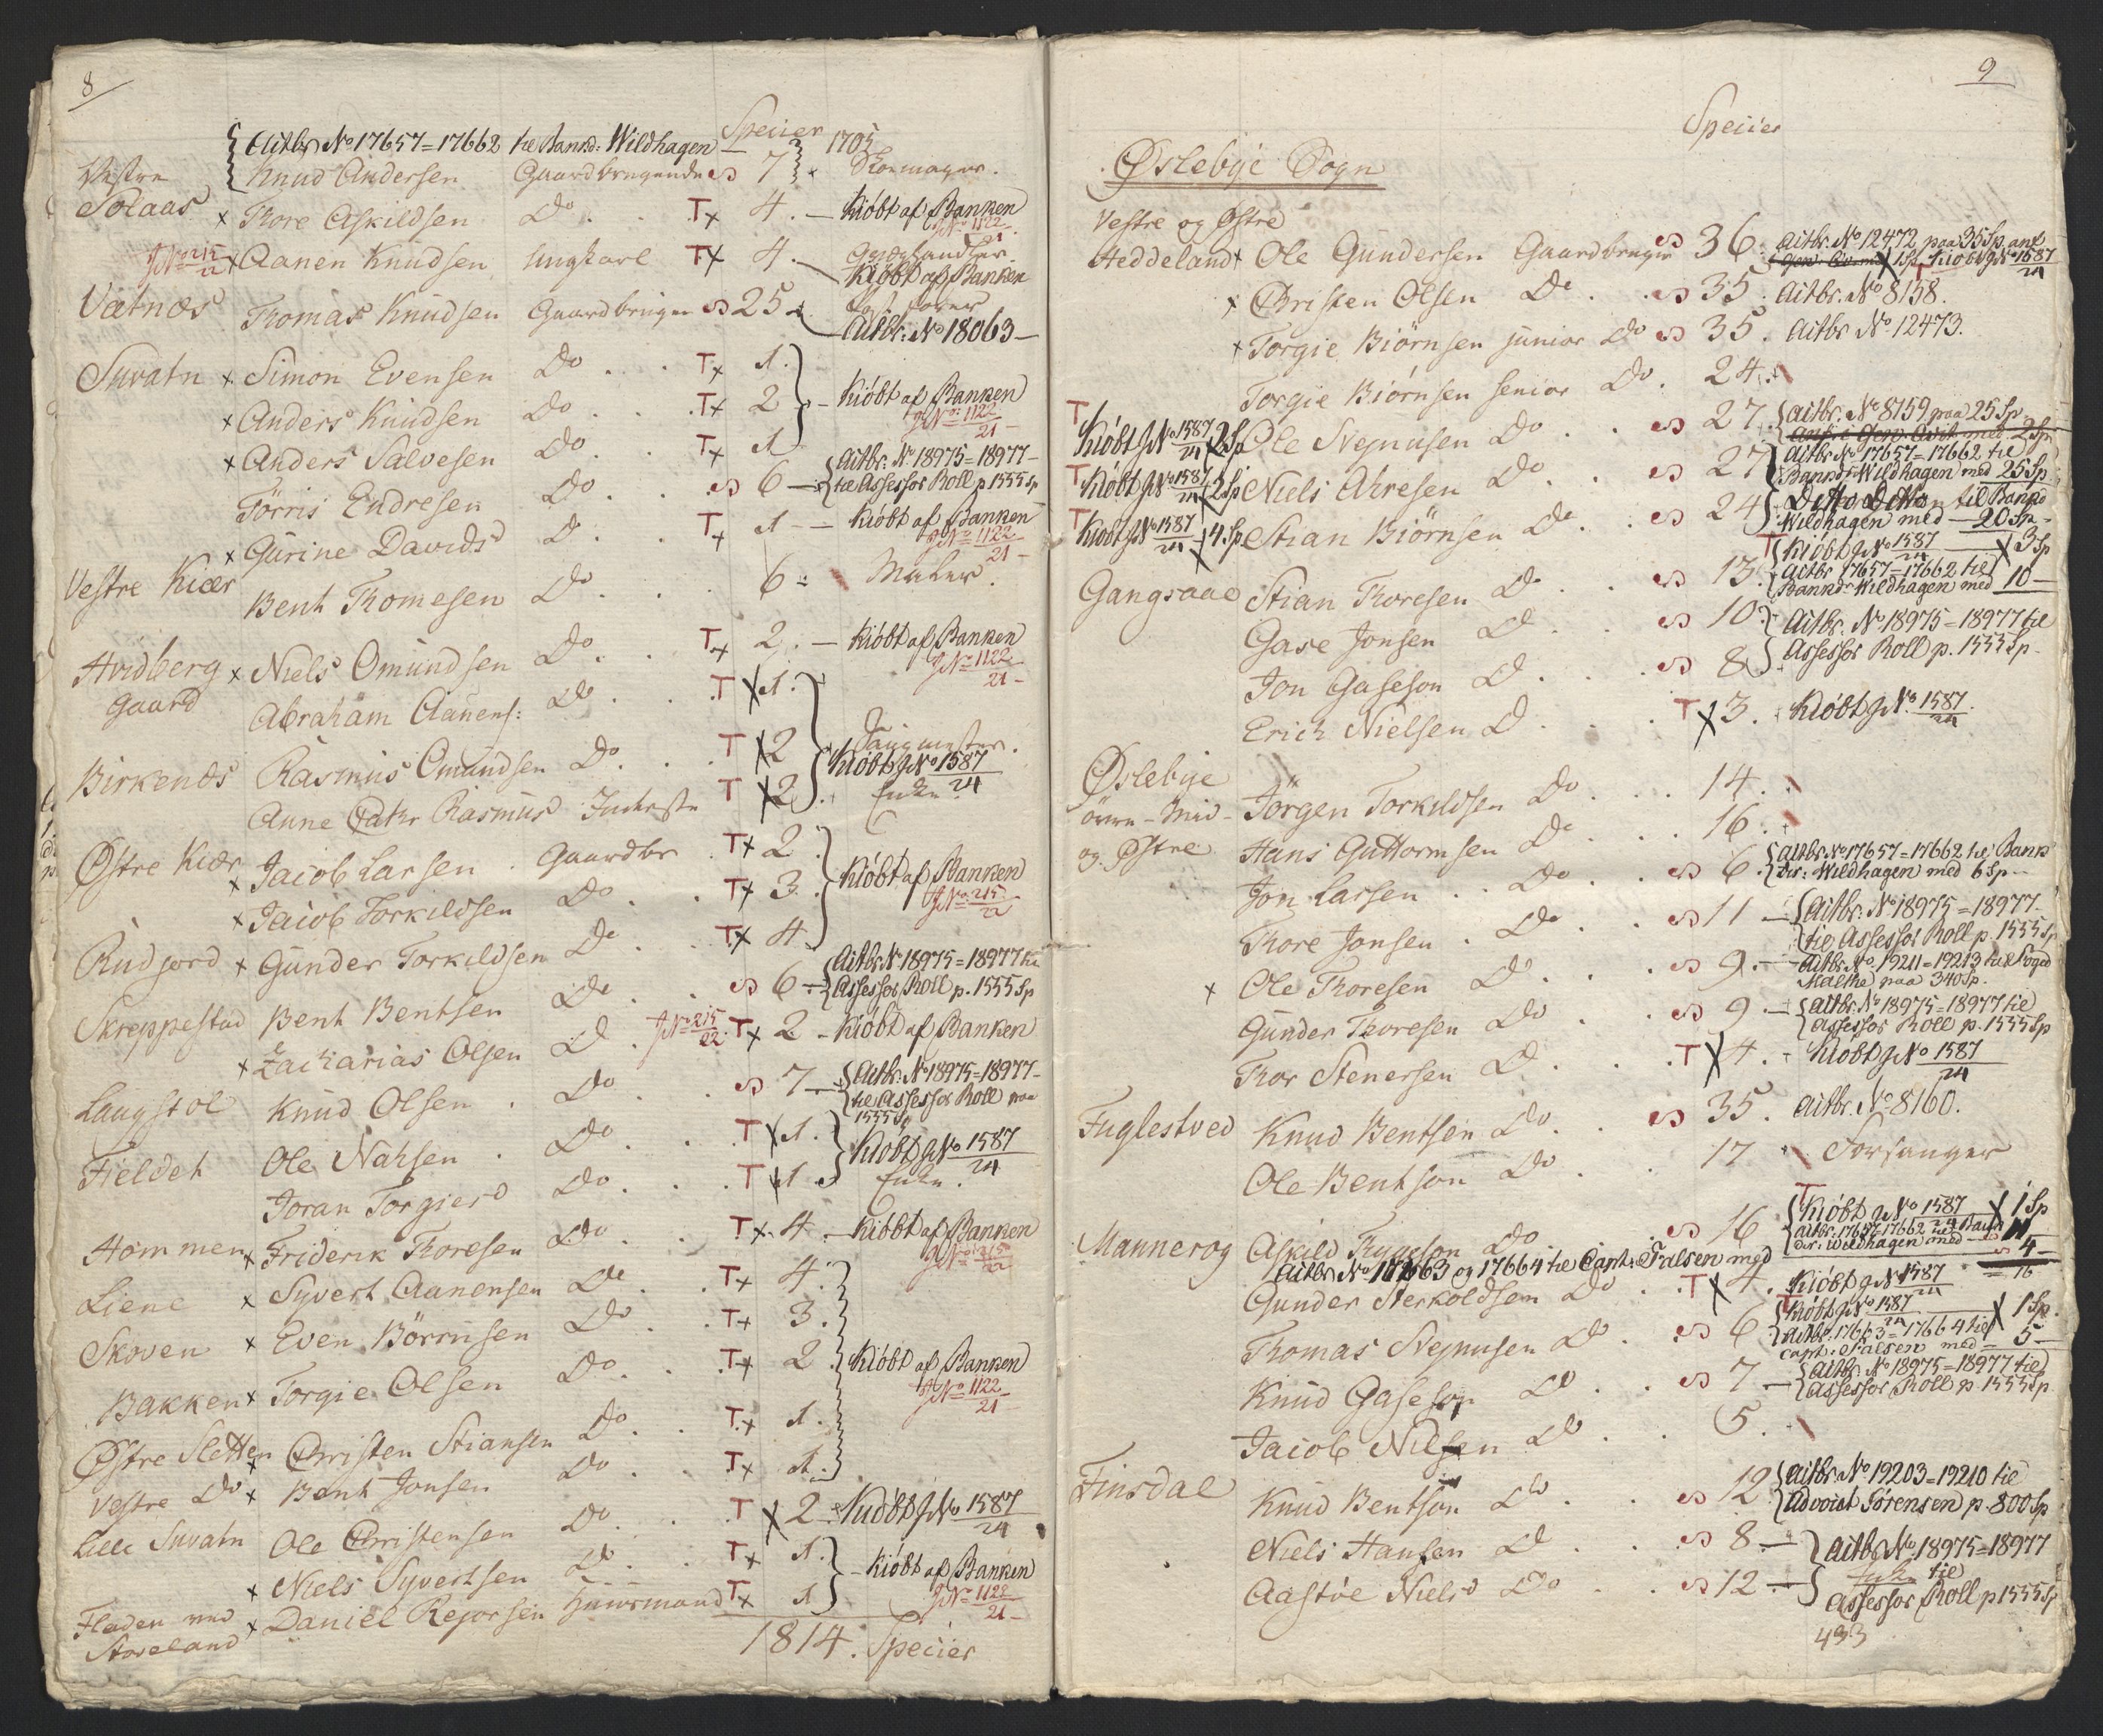 8
Specier
Actbr No 17657=17662 til Bankd: Wildhagen 1705
Vestre Knud Andersen Gaardbrugende 7 Skoemager.
Solaas x Thore Askildsen Do . . T x 4. — Kiöbt af Banken
JNo 1122/21
JNo 215/22 x Aanen Knudsen Ungkarl T x 4. —
Kiöbt af Banken
Vatnæs Thomas Knudsen Gaardbruger 25
Actbr: No 18063 —
Suvatn x Simon Evensen Do . . . T x 1.
x Anders Knudsen Do . . . T x 2 — Kiöbt af Banken
JNo: 1122/21 —
x Anders Salvesen Do . . T x 1
Törris Endresen Do . . 6 — Actbr. No 18975=18977 —
til Assessor Roll p 1555 Sp
x Gurine Davids D. . . T x 1 — — Kiöbt af Banken
JNo 1122/21 —
Vestre Kiær Bent Thomesen Do . . . 6 Maler.
Hvidberg x Niels Omundsen Do . . T x 2. — Kiöbt af Banken
JNo 1122/21 —
gaard Abraham Aanens: Do . . T x 1.
Birkenæs Rasmus Omundsen Do . . T x 2
Kiöbt JNo 1587/24
Anne Cathr Rasmus Inderste T x 2. Enke
Østre Kiær x Jacob Larsen . Gaardbr . T x 2.
x Jacob Torkildsen Do . . T x 3. Kiöbt af Banken
JNo. 215/22
Rudjord x Gunder Torkildsen Do . . T x 4.
Skreppestad Bent Bentsen Do . . 6 — Actbr. No 18975=18977 til
Assessor Roll p. 1555 Sp
x Zacharias Olsen D . JNo 215/22 T x 2 — Kiöbt af Banken
Laugstol Knud Olsen . Do . . 7 — Actbr. No 18975=18977 —
til Assessor Roll paa
1555 Sp
Fieldet Ole Natsen . Do . . T x 1. Kiöbt JNo 1587/24
Joran Torgiers Do . . . T x 1 Enke.
Hommen x Friderik Thoresen Do . . T x 4 — Kiöbt af Banken
JNo 215/22
Liene x Syvert Aanensen Do . . T x 4.
Skoven x Even Börrusen Do . . T x 3.
Bakken x Torgie Olsen Do . . . T x 2 Kiöbt af Banken
JNo 1122/21 —
Østre Sletten x Christen Stiansen Do . . T x 1.
Vestre Do x Bent Jonsen Do . . T x 1.
Lille Suvatn Ole Christensen Do . . T x 2 — Kiöbt JNo 1587/24
x Niels Syvertsen Do . . T x 1. — Kiöbt af Banken
Fladen ved x Daniel Rejorsen Huusmand T x 1 JNo 1122/21 —
Storeland
1814. Specier
9
Specier
Øslebye Sogn
Vestre og Østre
Heddeland x Ole Gundersen Gaardbruger 36. Actbr. No 12472 paa 35 Sp.
1 Sp Kiöbt JNo 1587/24
x Christen Olsen Do . . 35. Actbr. No 8158.
x Torgie Biörnsen junior Do 35. Actbr No 12473.
Torgie Biörnsen senior Do . 24.
T Kiöbt JNo 1587/24 x 2 Sp Ole Stejnusen Do . . 27. Actbr. No 8159 paa 25 Sp
med 2 Sp
T Kiöbt JNo 1587/24 2 Sp Niels Ahresen Do . . 27 Actbr No 17657=17662 til
Bankdr Wildhagen med 25 Sp
T Kiöbt JNo 1587/24 4 Sp Stian Biörnsen Do . . 24 Ditto Ditto til Bankd
Wildhagen med — 20 Sp —
T Kiöbt JNo 1587/24 — x 3 Sp
Gangsaae Stian Thoresen Do . . 13. Actbr 17657=17662 til
Bankdr Wildhagen med 10 —
Gase Jonsen D . . . 10. Actbr. No 18975=18977 til
Jon Gaseson D . . . 8 Assessor Roll p. 1555 Sp —
Erich Nielsen D . . . T x 3. Kiöbt JNo. 1587/24
Øslebye
övre — Mid — Jörgen Torkildsen Do . . . 14. .
og Østre Hans Guttormsen Do . . . 16.
Jon Larsen . . Do . . 6. Actbr. No 17657=17662 til Bank
Dir: Wildhagen med 6 Sp —
Thore Jonsen . Do . . 11 — Actbr. No 18975=18977 —
til Assessor Roll p. 1555 Sp
x Ole Thoresen D . . . 9. — Actbr. No 19211=19213 til Foged
Malthe paa 340 Sp.
Gunder Thoresen Do . . . 9. — Actbr. No 18975=18977 til
Assessor Roll p. 1555 Sp
Thor Stenersen D . . . T x 4. Kiöbt JNo 1587/24
Fuglestved Knud Bentsen Do . . 35. Actbr. No 8160.
Ole Bentson Do . . 17 Forsanger
Mannerog Askild Thygeson Do 16 T Kiöbt JNo 1587/24 x 1 Sp
Actbr. 17657=17662 til Bank
Dir: Wildhagen med — 11
4 —
Actbr No 17663 og 17664 til Capt: Falsen med
= 16
Gunder Sterkoldsen Do . . T x 4. Kiöbt JNo 1587/24
T Kiöbt JNo 1587/24 — x 1 Sp.
Thomas Stejnusen D . 6 Actbr. 17663=17664 til
Capt: Falsen med = 5 —
Knud Gaseson D . . 7 — Actbr. No 18975=18977 til
Assessor Roll p 1555 Sp
Jacob Nilsen D . . . 5.
Finsdal Knud Bentson Do . . 12 Actbr. No 19203=19210 til
Advocat Sörensen p. 800 Sp
Niels Hansen D . . . 8 — Actbr. No. 18975=18977
Aastöe Niels Do . . 12 — Enke til
Assessor Roll p 1555 Sp
433